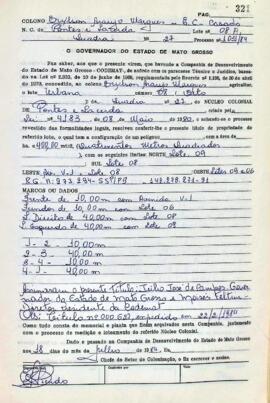 PAG. 321
COLONO Erickson Araujo Marques - B.C - Casado
N. C. de Pontes e Lacerda Lote 08 A
Quadra: 27 Processo nº 1.051/84
O GOVERNADOR DO ESTADO DE MATO GROSSO
Faz saber, aos que o presente virem, que havendo a Companhia de Desenvolvimento
do Estado de Mato Grosso - CODEMAT, de acordo com os pareceres Técnico e Jurídico, basea-
concedido, ao colono Erickson Araujo Marques
o lote Urbano número 08 : Oito
Quadra 27 NÚCLEO COLONIAL
DE Pontes e Lacerda
Lei 4183 de 08 de Maio
revestido das formalidades legais, resolveu conferir-lhe o presente título de propriedade
do referido lote, o qual tem a configuração de um polígono
ha 400,00 m² Quatrocentos Metros Quadrados
com os seguintes limites NORTE Lote 09
SUL Lote 08
LESTE V-1 Lote 08 OESTE Lotes 09 e 06
MARCOS OU DADOS
Frente de 10,00m com Avenida V-1
Fundos de 10,00m com Lote 06
L. Direito de 40,00m com Lote 08
L. Esquerdo de 40,00m com Lote 09
1 - 2 - 10,00m
2 - 3 - 40,00m
3 - 4 - 10,00m
4 - 1 - 40,00m
Assinaram o presente Título: Júlio José de Campos, Gover-
nador do Estado de Mato Grosso e Moisés Feltrin -
Diretor Presidente da Codemat
Obs: Título nº 000.652, expedido em 22/2/1984
Como tudo consta do memorial e planta que ficam arquivados nesta Companhia, juntamente
com o processo de medição e loteamento do referido Núcleo Colonial.
Dado e passado na Companhia de Desenvolvimento do Estado de Mato Grosso
aos 18 dias do mês de Julho de 1984.
Chefe do Setor de Colonização, o fiz escrever e assino.